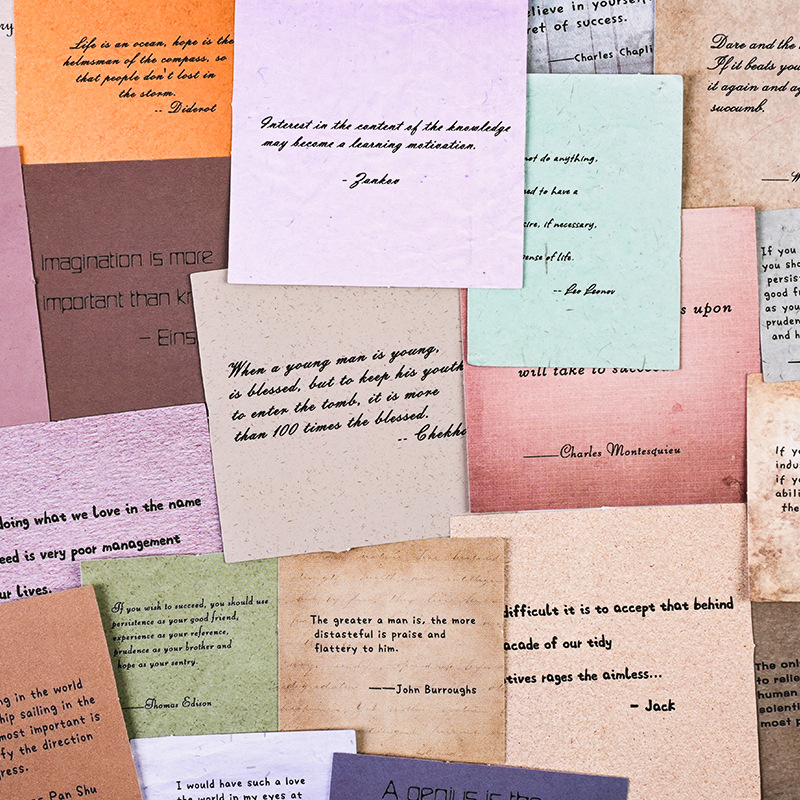 Life is an ocean, hope is the
helmsman of the compass, so
that people don't lost in
the storm.
-- Diderot
Interest in the content of the knowledge
may become a learning motivation.
- Zankov
elieve in yourself
ret of success.
——Charles Chapli
Dare and the
If it beats you
it again and ag
succumb.
Imagination is more
important than kn
- Eins
not do anything,
ed to have a
ire, if necessary,
ense of life.
-- Leo Leonov
s upon
will take to succe
——Charles Montesquieu
If you
you sho
persis
good fr
as you
pruden
and h
When a young man is young,
is blessed, but to keep his youth
to enter the tomb, it is more
than 100 times the blessed.
-- Chekho
If yo
indu
if yo
abili
the
doing what we love in the name
eed is very poor management
ur lives.
If you wish to succeed, you should use
persistence as your good friend,
experience as your reference,
prudence as your brother and
hope as your sentry.
——Thomas Edison
The greater a man is, the more
distasteful is praise and
flattery to him.
——John Burroughs
difficult it is to accept that behind
acade of our tidy
tives rages the aimless...
- Jack
The onl
to relie
human
scienti
most p
ng in the world
hip sailing in the
most important is
fy the direction
gress.
s Pan Shu
I would have such a love
the world in my eyes at
A genius is the